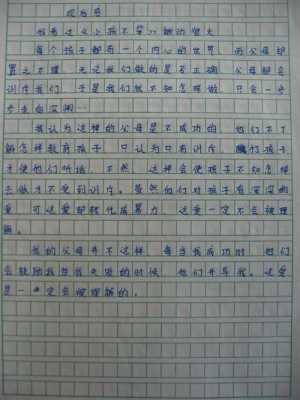 观后感
我看过《小孩不笨》触动很大
每个孩子都有一个内心的世界 而父母却
置之不理 无论我们做的是否正确 父母都会
训斥我们 于是我们就不知怎样做 只会一步
步走向深渊…
我认为这样的父母是不成功的 他们不了
解怎样教育孩子 只认为只有训斥 孩子
才使他们听话 不然 这样会使孩子不知怎样
去做才不受到训斥。虽然他们对孩子有深深的
爱 可这爱却转化成暴力 这爱一定不会被理
解。
我的父母并不这样 每当我成功时 他们
会鼓励我当我失败的时候 他们开导我。这爱
是一定会被理解的。